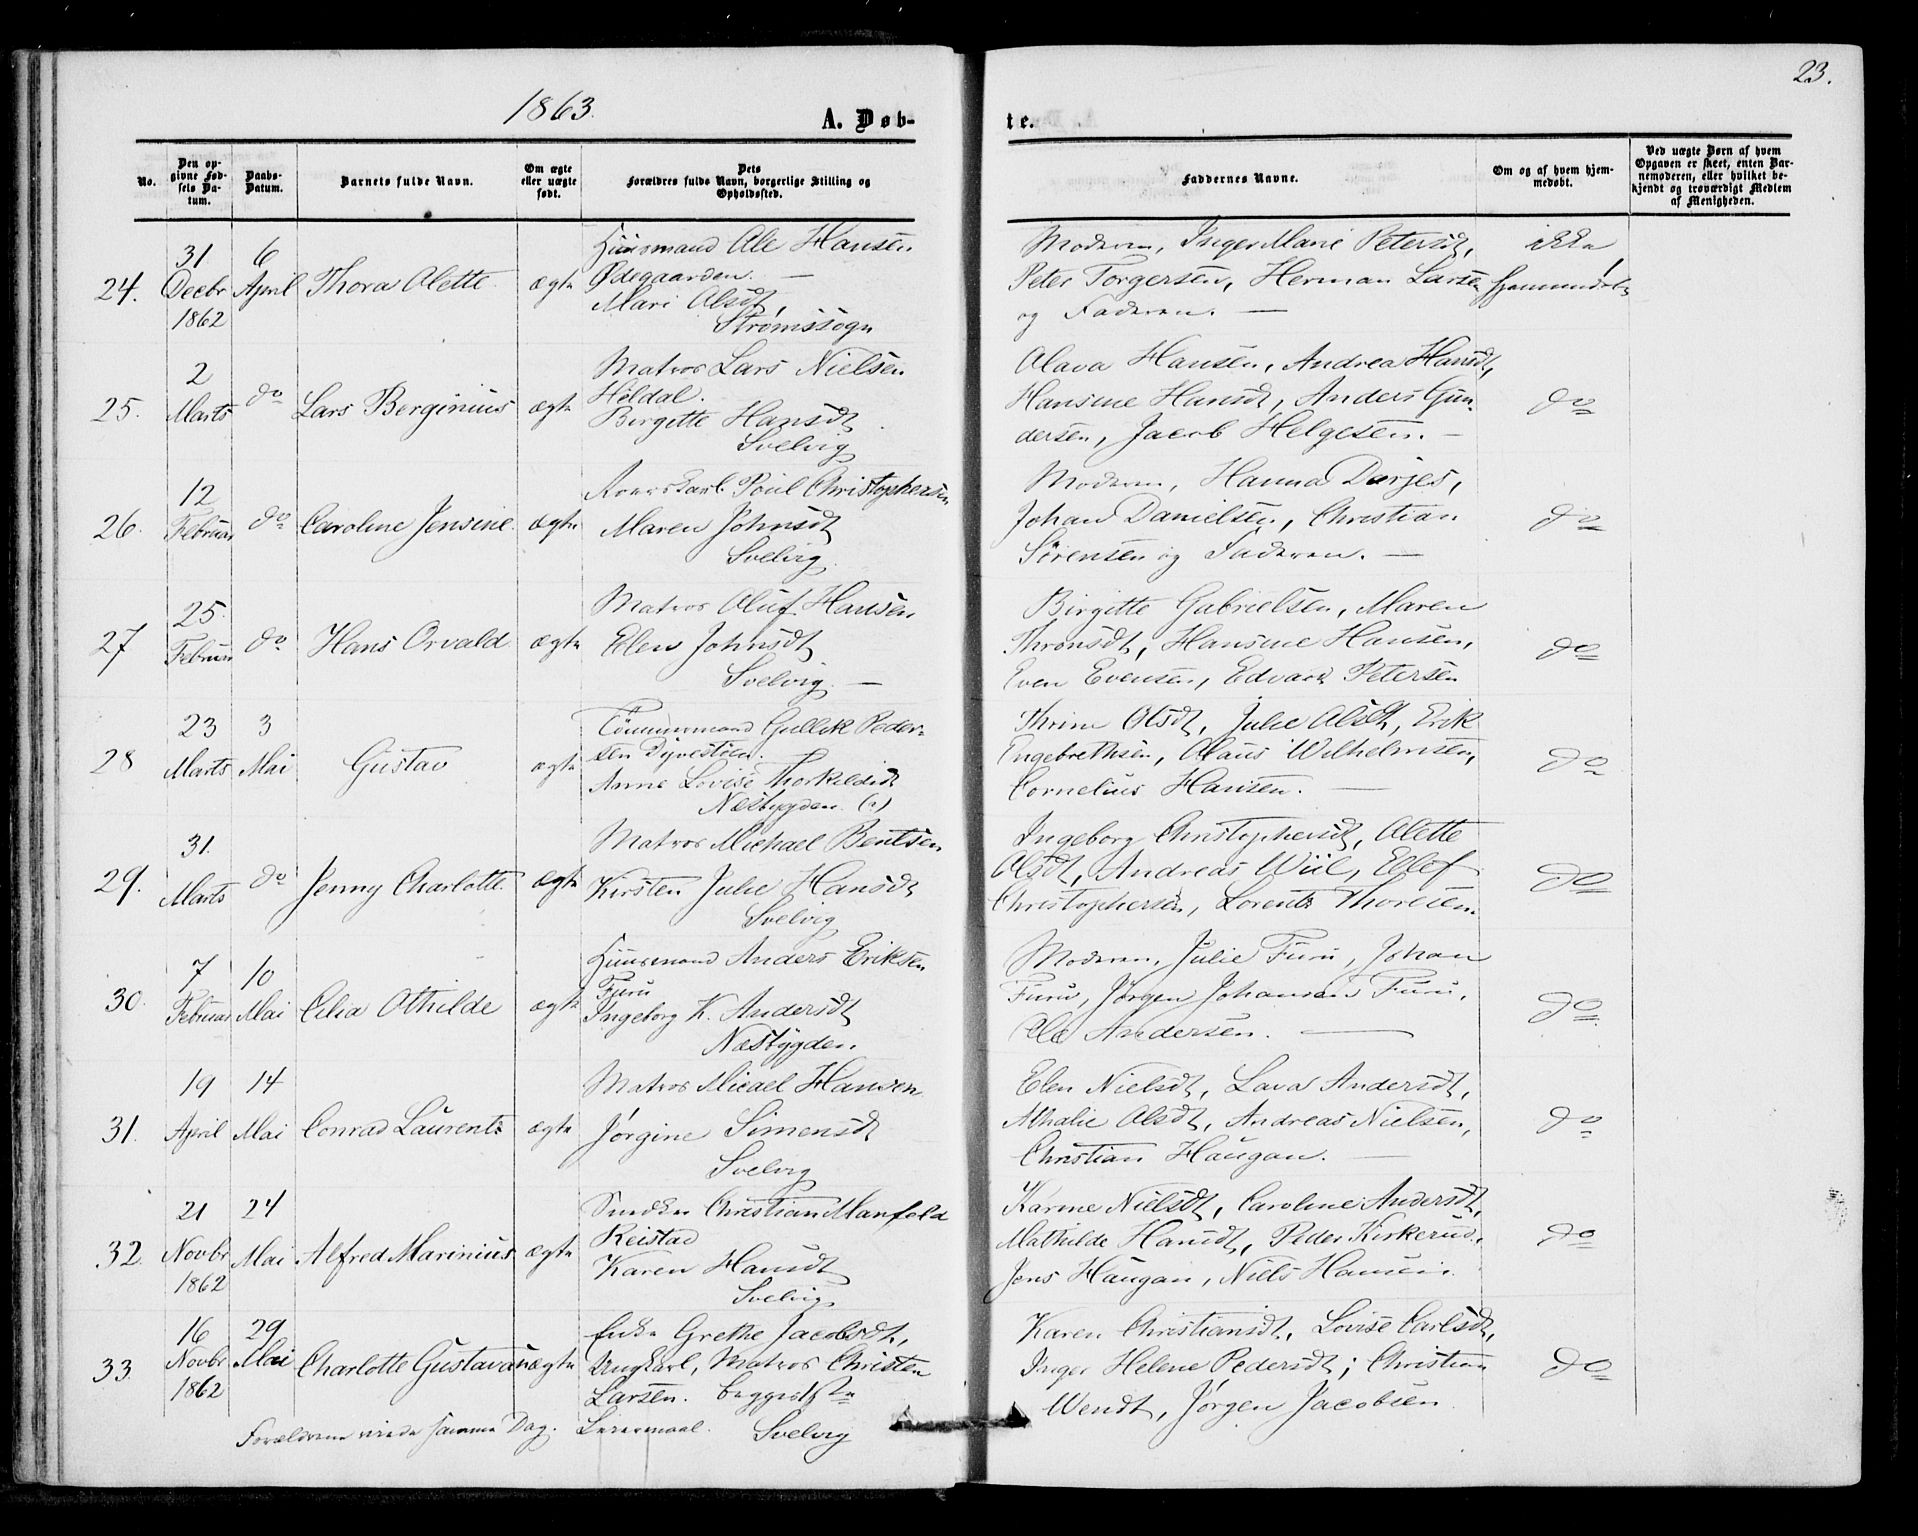 1863.
A. Døb-
te.
23.
No.
Den op-
givne Fød-
sels Da-
tum.
Daabs-
Datum.
Barnets fulde Navn.
Om ægte
eller uægte
født.
Dets
Forældres fulde Navn, borgerlige Stilling og
Opholdssted.
Faddernes Navne.
Om og af hvem hjem-
medøbt.
Ved uægte Børn af hvem
Opgaven er skeet, enten Bar-
nemoderen, eller hvilket be-
kjendt og troværdigt Medlem
af Menigheden.
24.
31
Decbr
1862
6
April
Thora Olette
ægte
Huusmand Ole Hansen
Ødegaarden. —
Mari Olsdt,
Strømssogn
Moderen, Inger Marie Petersdt,
Peter Torgersen, Herman Larsen
og Faderen. —
ikke
hjemmedøbt
25.
2
Marts
do
Lars Berginius
ægte
Matros Lars Nielsen
Høldal.
Birgitte Hansdt
Svelvig
Olava Hansen, Andrea Hansdt,
Hansine Hansdt, Anders Gun-
dersen, Jacob Helgesen. —
do
26.
12
Februar
do
Caroline Jensine
ægte
Roerskarl Poul Christophersen
Maren Johnsdt
Svelvig
Moderen, Hanna Dorjes,
Johan Danielsen, Christian
Sørensen og Faderen. —
do
27
25.
Februar
do
Hans Orvald
ægte
Matros Oluf Hansen
Elen Johnsdt
Svelvig. —
Birgitte Gabrielsen, Maren
Thronsdt, Hansine Hansen,
Even Evensen, Edvard Petersen
do
28
23
Marts
3
Mai
Gustav
ægte
Tømmermand Gullik Peder-
sen Dyvestøen.
Anne Lovise Thorkeldsdt
Nesbygden. (?)
Thrine Olsdt, Julie Olsdt, Erik
Engebrethsen, Olaus Wilhelmsen,
Cornelius Hansen. —
do
29.
31.
Marts
do
Jenny Charlotte
ægte
Matros Michael Bentsen
Kirsten Julie Hansdt
Svelvig
Ingeborg Christophersdt, Olette
Olsdt, Andreas Wiil, Ellef
Christophersen, Lorents Thoresen.
do
30.
7
Februar
10
Mai
Celia Othilde
ægte
Huusmand Anders Eriksen
Furu
Ingeborg K. Andersdt
Nesbygden.
Moderen, Julie Furu, Johan
Furu, Jørgen Johansen Furu,
Ole Andersen. —
do
31.
19
April
14
Mai
Conrad Laurents
ægte
Matros Micael Hansen
Jørgine Simensdt
Svelvig
Elen Nielsdt, Lava Andersdt,
Athalie Olsdt, Andreas Nielsen,
Christian Haugan. —
do
32.
21
Novbr
1862
24
Mai
Alfred Marinius
ægte
Snedker Christian Manfeld
Reistad
Karen Hansdt
Svelvig
Karine Nielsdt, Caroline Andersdt,
Mathilde Hansdt, Peder Kirkerud,
Jens Haugan, Niels Hansen.
do
33.
16
Novbr
1862
29
Mai
Charlotte Gustava
uægte
Enke Grethe Jacobsdt,
Ungkarl, Matros Christen
Larsen. begges 1ste
Leiermaal. Svelvig
Karen Christiansdt, Lovise Carlsdt,
Inger Helene Pedersdt; Christian
Wendt, Jørgen Jacobsen
do
Forældrene viede samme Dag.